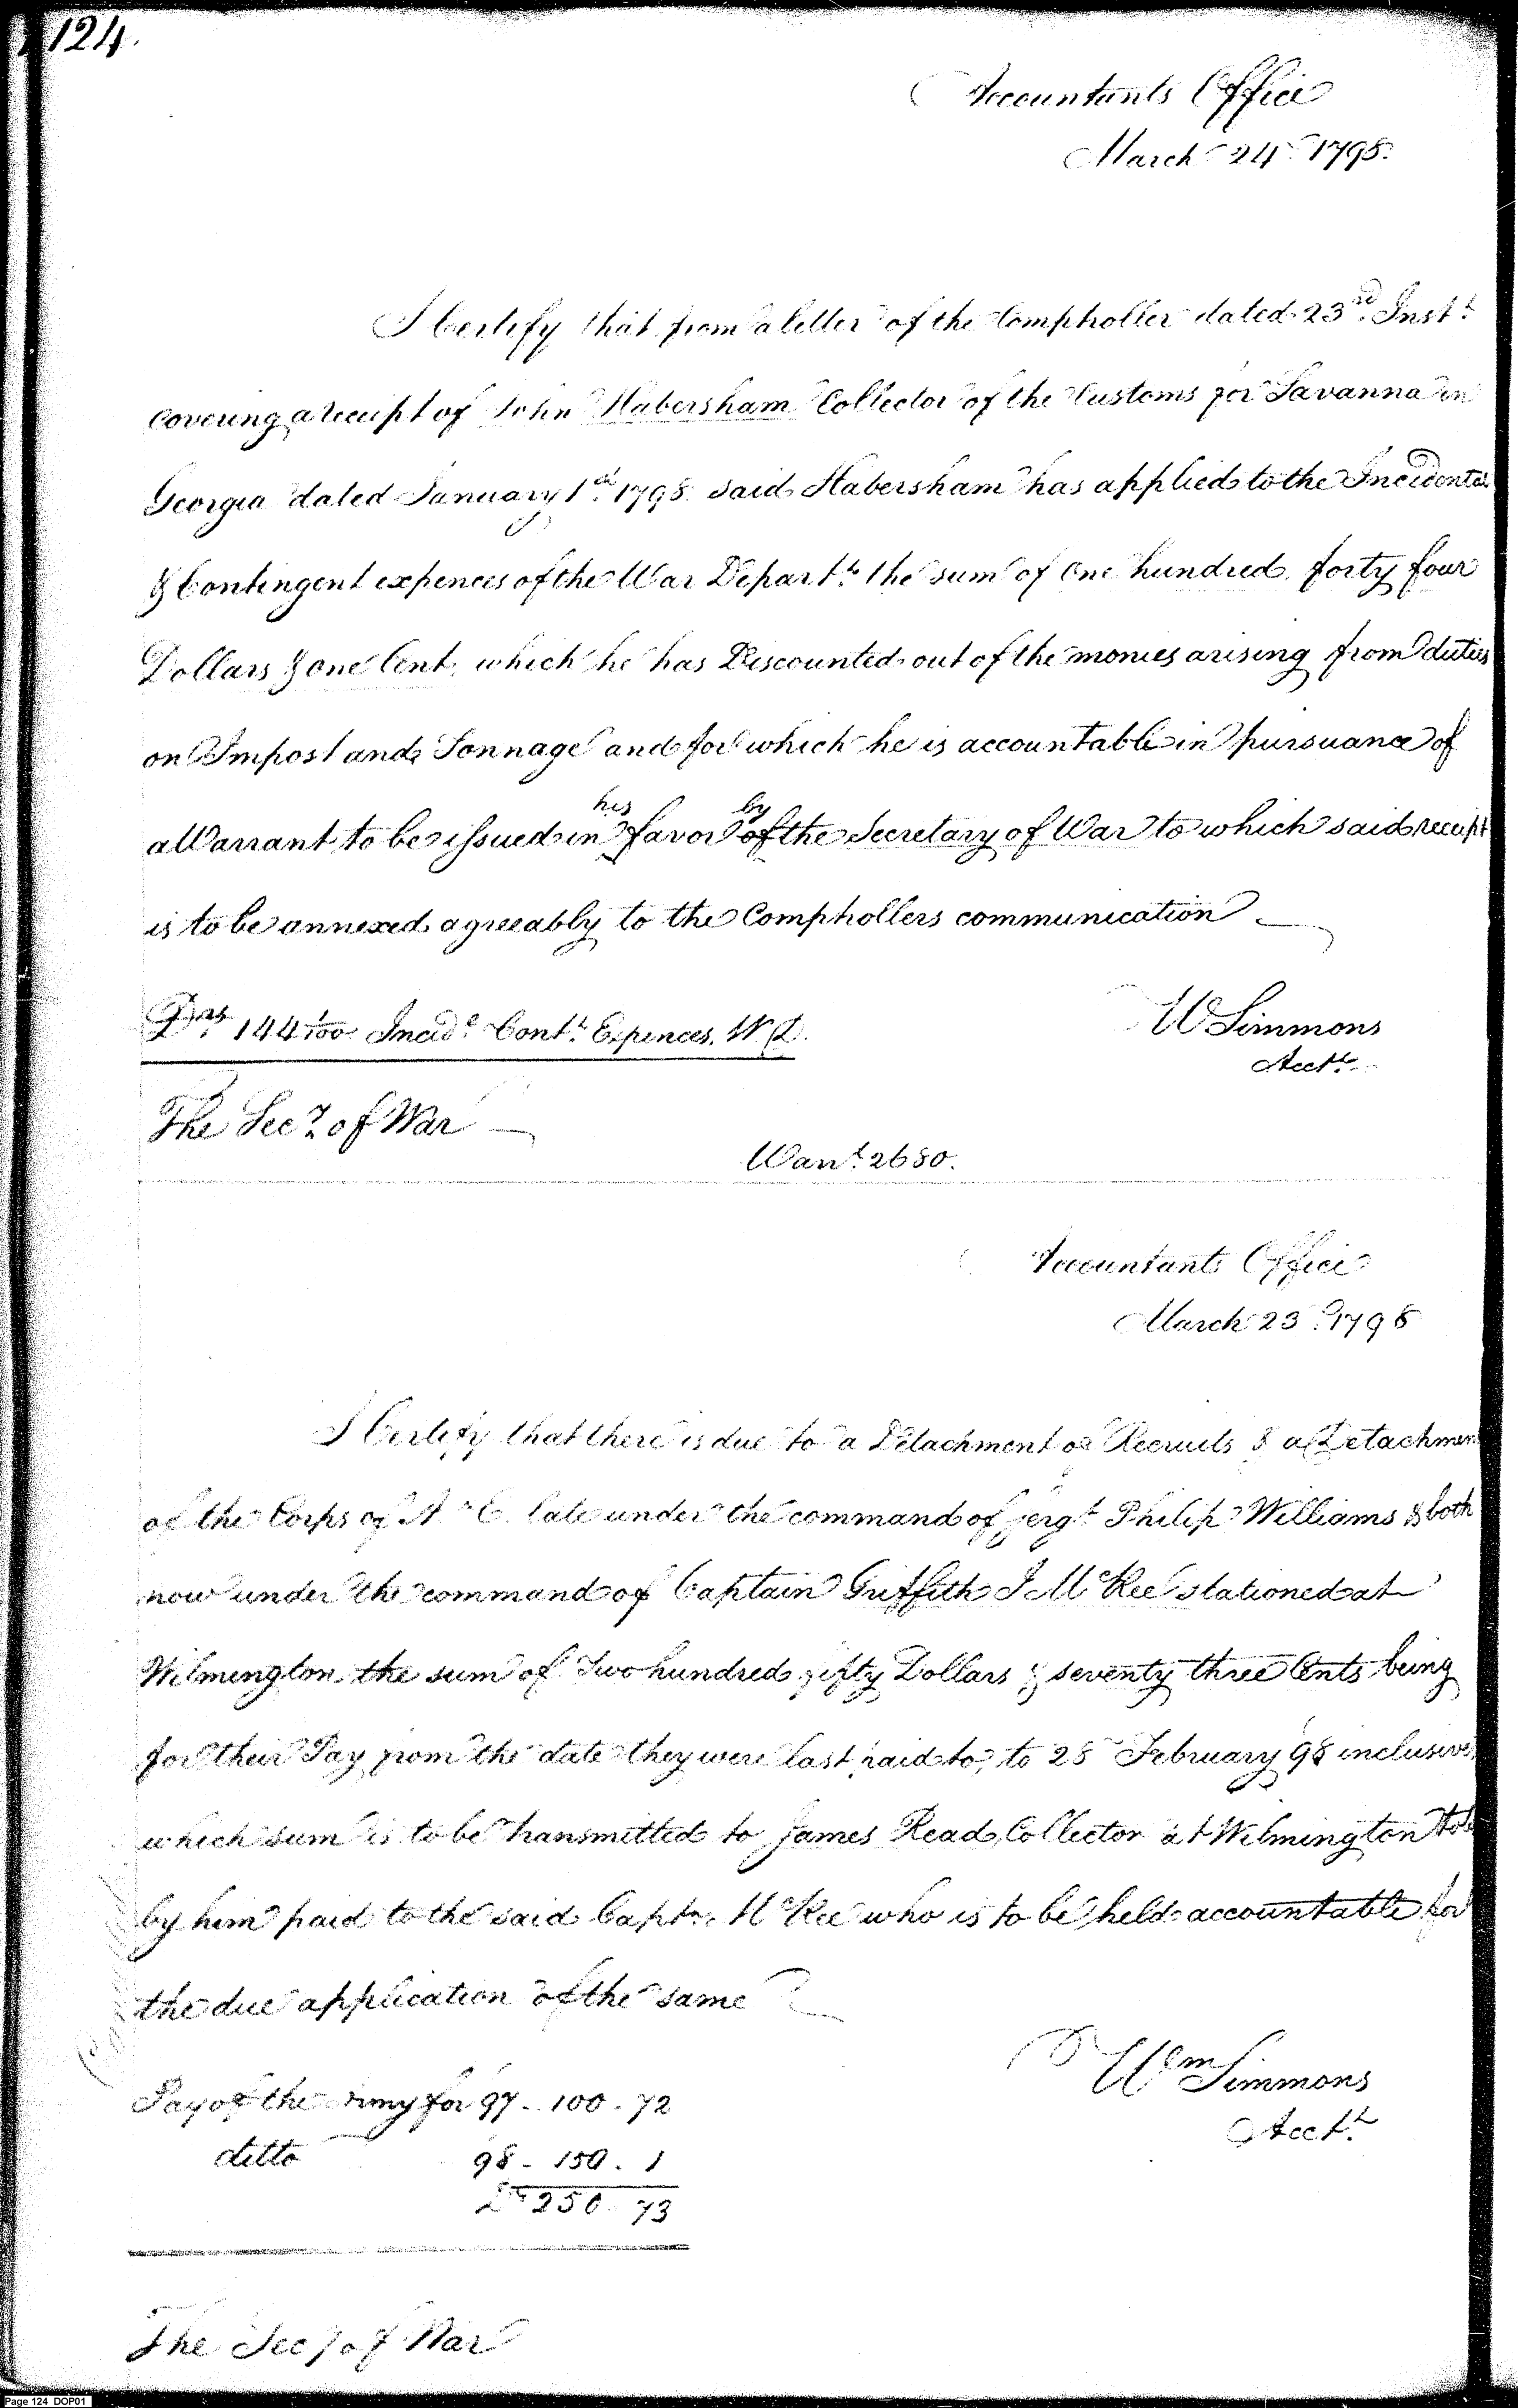 124.
Accountants Office
March 24th 1798.
I Certify that from a letter of the Comptroller dated 23rd Instt
covering a receipt of John Habersham Collector of the Customs for Savanna in
Georgia dated January 1st 1798 said Habersham has applied to the Incidental
& Contingent expences of the War Departt the sum of One hundred forty four
Dollars & one Cent, which he has Discounted out of the monies arising from duties
on Impost and Tonnage and for which he is accountable in pursuance of
his by
a Warrant to be issued in favor of the Secretary of War to which said receipt
is to be annexed agreeably to the Comptrollers communication
Drs 144 1/100 Incidl Contt Expences. W. D.
W Simmons
Acctt
The Secy of War
Warrt 2680.
Accountants Office
March 23d 1798
I Certify that there is due to a Detachment of Recruits & a Detachmen
of the Corps of A & E late under the command of Sergt Philip Williams & both
now under the command of Captain Griffith J McRee stationed at
Wilmington the sum of Two hundred fifty Dollars & seventy three Cents being
for their Pay from the date they were last paid to, to 28 February 98 inclusive
which sum is to be transmitted to James Read Collector at Wilmington to
by him paid to the said Captn McRee who is to be held accountable for
the due application of the same
Pay of the Army for 97 - 100.72
ditto 98 - 150.1
Drs 250 73
Wm Simmons
Acctt
The Secy of War
Page 124 DOP01